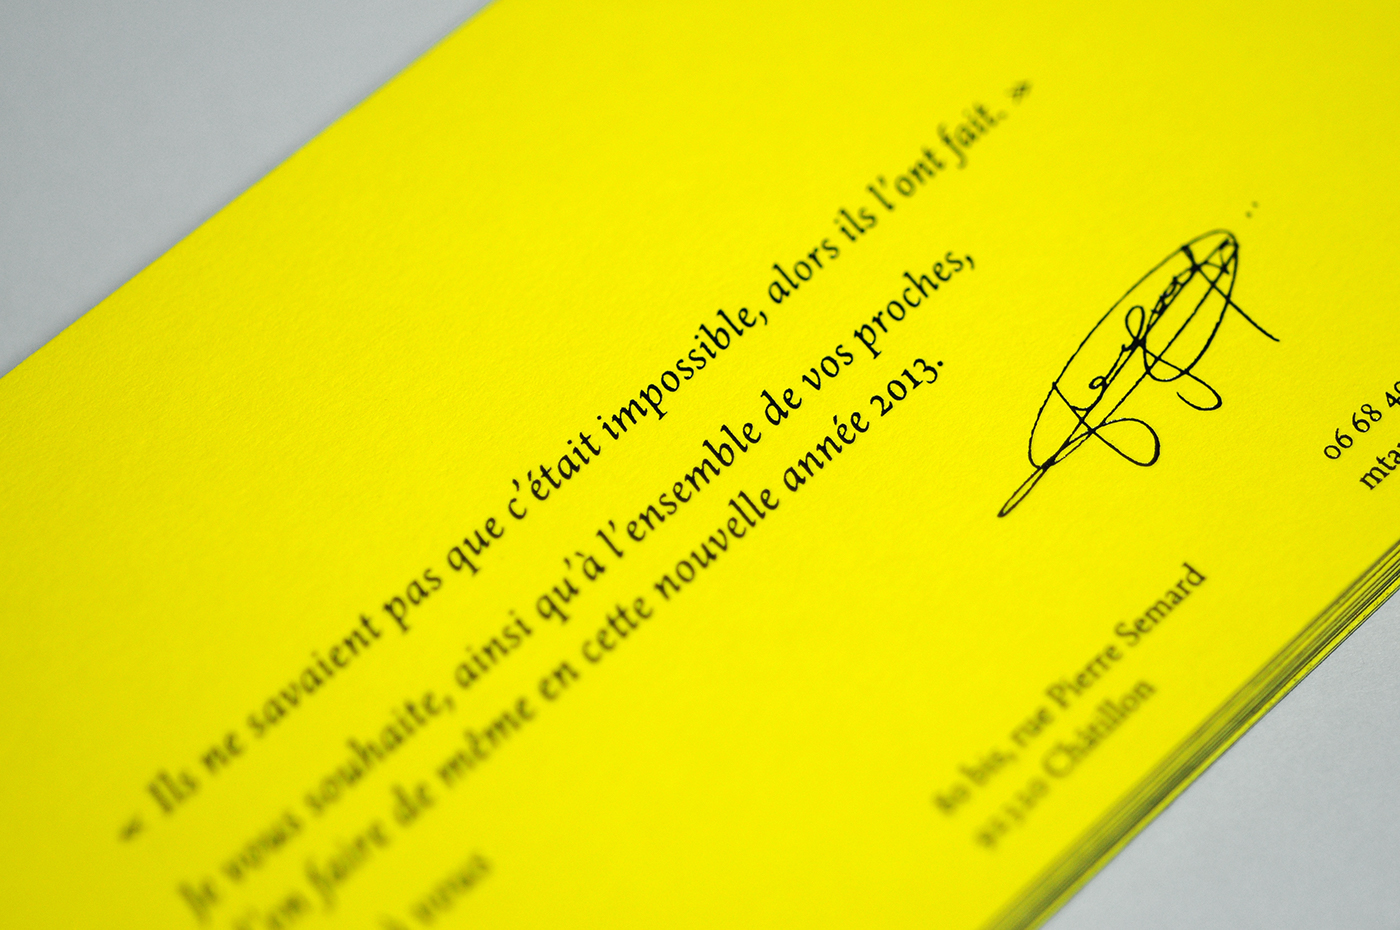 « Ils ne savaient pas que c’était impossible, alors ils l’ont fait. »
Je vous souhaite, ainsi qu’à l’ensemble de vos proches,
d’en faire de même en cette nouvelle année 2013.
à vous
06 68 40
mta
80 bis, rue Pierre Semard
92320 Châtillon